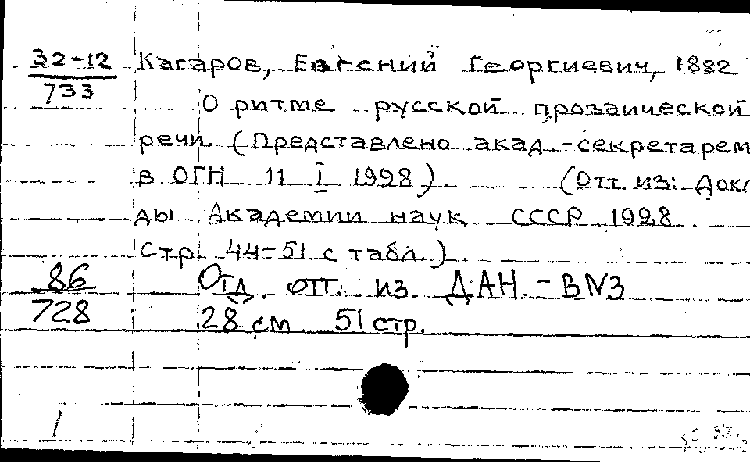 32-12 Кагаров, Евгений Георгиевич, 1882
733
О ритме русской прозаической
речи. (Представлено акад.-секретарем
в ОГН 11 I 1928) (Отт. из: Докл
ды Академии наук СССР 1928.
Стр. 44-51 с табл.)
86 Отд. отт. из ДАН - В №3
728 28 см 51 стр.
1